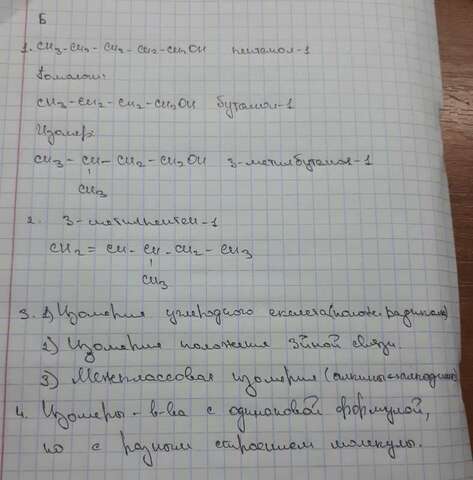 Б
1. CH3-CH2-CH2-CH2-CH2OH пентанол-1
Гомолог:
CH3-CH2-CH2-CH2OH бутанол-1
Изомер:
CH3-CH-CH2-CH2OH 3-метилбутанол-1
CH3
2. 3-метилпентен-1
CH2=CH-CH-CH2-CH3
CH3
3. 1) Изомерия углеродного скелета (полож. радикала)
2) Изомерия положения 3йной связи.
3) Межклассовая изомерия (алкины=алкадиены)
4. Изомеры - в-ва с одинаковой формулой,
но с разным строением молекулы.